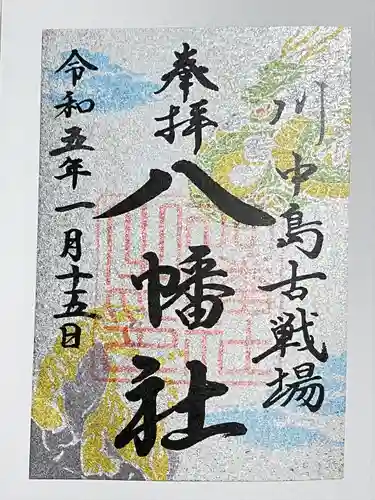 川中島古戦場
奉拝
八幡社
令和五年一月十五日